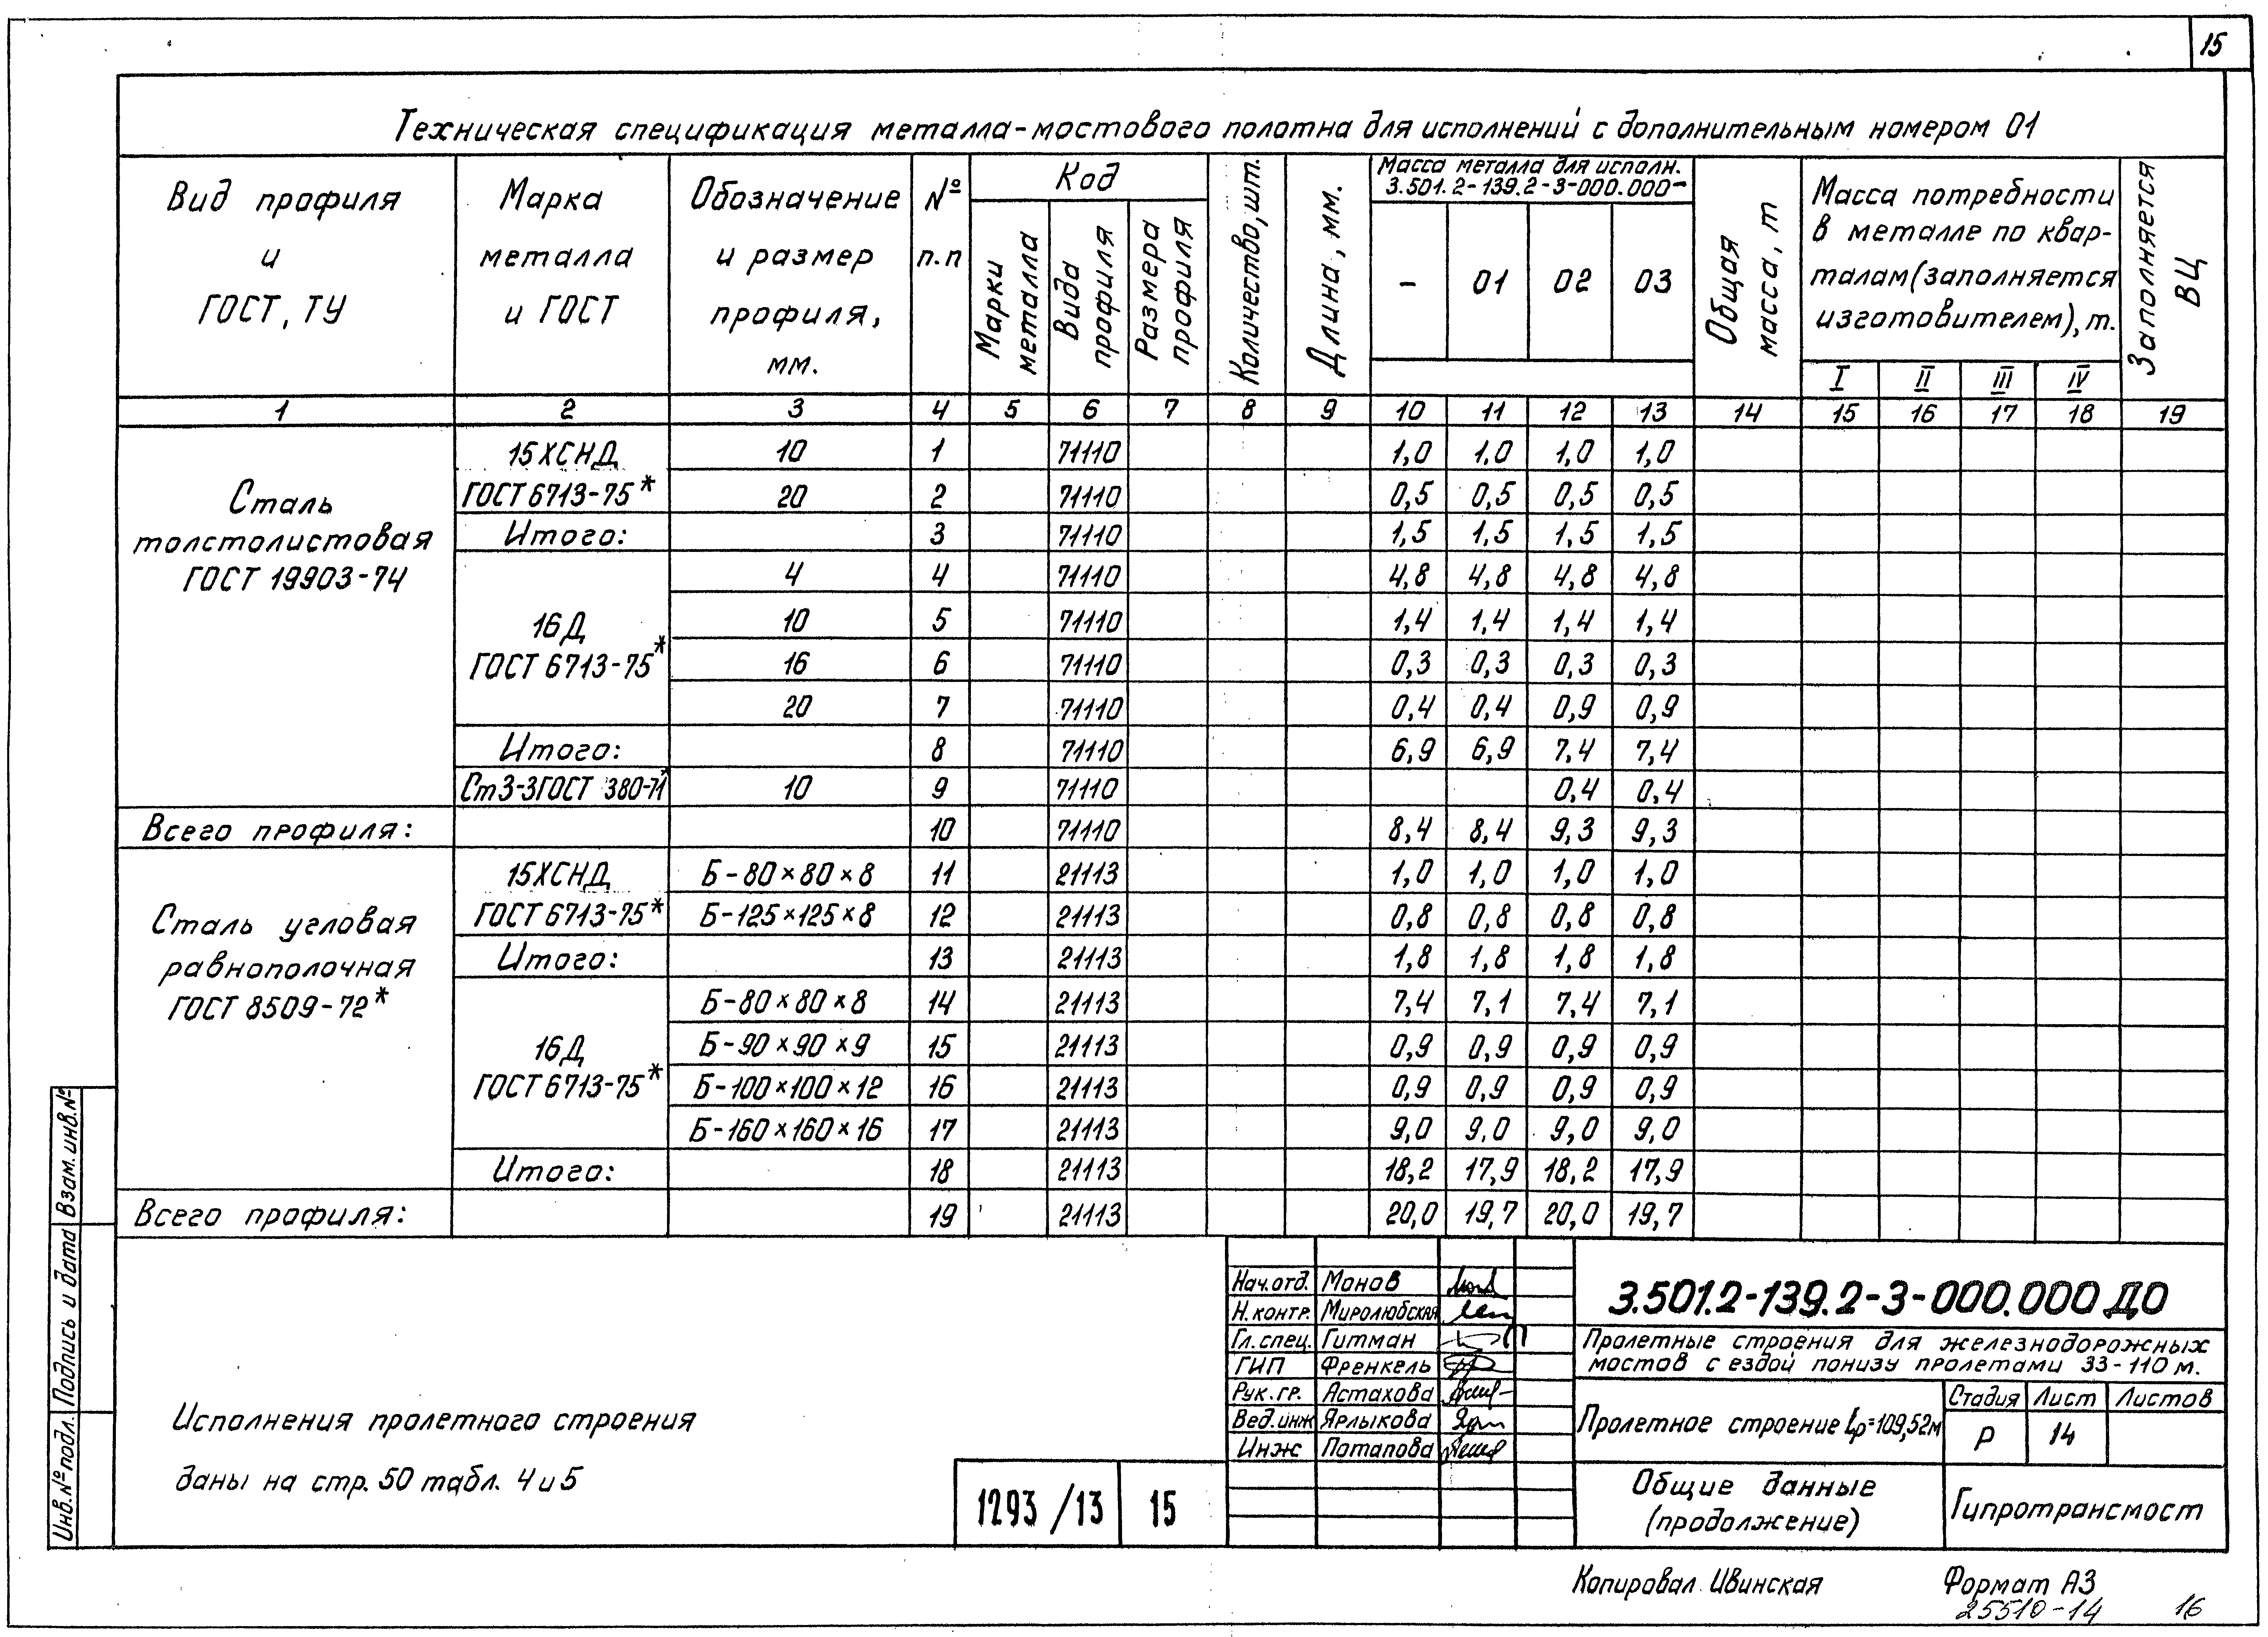 15
Техническая спецификация металла-мостового полотна для исполнений с дополнительным номером 01
Вид профиля и ГОСТ, ТУ
Марка металла и ГОСТ
Обозначение и размер профиля, мм.
№ п.п
Код
Марки металла
Вида профиля
Размера профиля
Количество, шт.
Длина, мм.
Масса металла для исполн. 3.501.2-139.2-3-000.000-
- 01 02 03
Общая масса, т
Масса потребности в металле по кварталам (заполняется изготовителем), т.
I II III IV
Заполняется ВЦ
1 2 3 4 5 6 7 8 9 10 11 12 13 14 15 16 17 18 19
Сталь толстолистовая ГОСТ 19903-74
15ХСНД ГОСТ 6713-75*
10 1 71110 1,0 1,0 1,0 1,0
20 2 71110 0,5 0,5 0,5 0,5
Итого: 3 71110 1,5 1,5 1,5 1,5
16Д ГОСТ 6713-75*
4 4 71110 4,8 4,8 4,8 4,8
10 5 71110 1,4 1,4 1,4 1,4
16 6 71110 0,3 0,3 0,3 0,3
20 7 71110 0,4 0,4 0,9 0,9
Итого: 8 71110 6,9 6,9 7,4 7,4
Ст3-3 ГОСТ 380-71* 10 9 71110 0,4 0,4
Всего профиля: 10 71110 8,4 8,4 9,3 9,3
Сталь угловая равнополочная ГОСТ 8509-72*
15ХСНД ГОСТ 6713-75*
Б-80×80×8 11 21113 1,0 1,0 1,0 1,0
Б-125×125×8 12 21113 0,8 0,8 0,8 0,8
Итого: 13 21113 1,8 1,8 1,8 1,8
16Д ГОСТ 6713-75*
Б-80×80×8 14 21113 7,4 7,1 7,4 7,1
Б-90×90×9 15 21113 0,9 0,9 0,9 0,9
Б-100×100×12 16 21113 0,9 0,9 0,9 0,9
Б-160×160×16 17 21113 9,0 9,0 9,0 9,0
Итого: 18 21113 18,2 17,9 18,2 17,9
Всего профиля: 19 21113 20,0 19,7 20,0 19,7
Исполнения пролетного строения
даны на стр. 50 табл. 4 и 5
1293/13 15
Нач.отд. Монов
Н.контр. Миролюбская
Гл.спец. Гитман
ГИП Френкель
Рук.гр. Астахова
Вед.инж Ярлыкова
Инж Потапова
3.501.2-139.2-3-000.000 ДО
Пролетные строения для железнодорожных
мостов с ездой понизу пролетами 33-110 м.
Пролетное строение Lp=109,52м
Стадия Лист Листов
Р 14
Общие данные
(продолжение)
Гипротрансмост
Инв.№ подл. Подпись и дата Взам.инв.№
Копировал Ивинская
Формат А3
25510-14 16